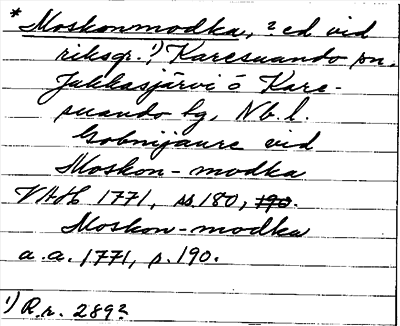 * Moskonmodka, ? ed vid
riksgr.¹) Karesuando sn.
Jukkasjärvi o Kare-
suando lg, Nb. l.
Gobnijaure vid
Moskon-modka
VAH 1771, ss. 180, 190.
Moskon-modka
a.a. 1771, s. 190.
¹) R.r. 289?